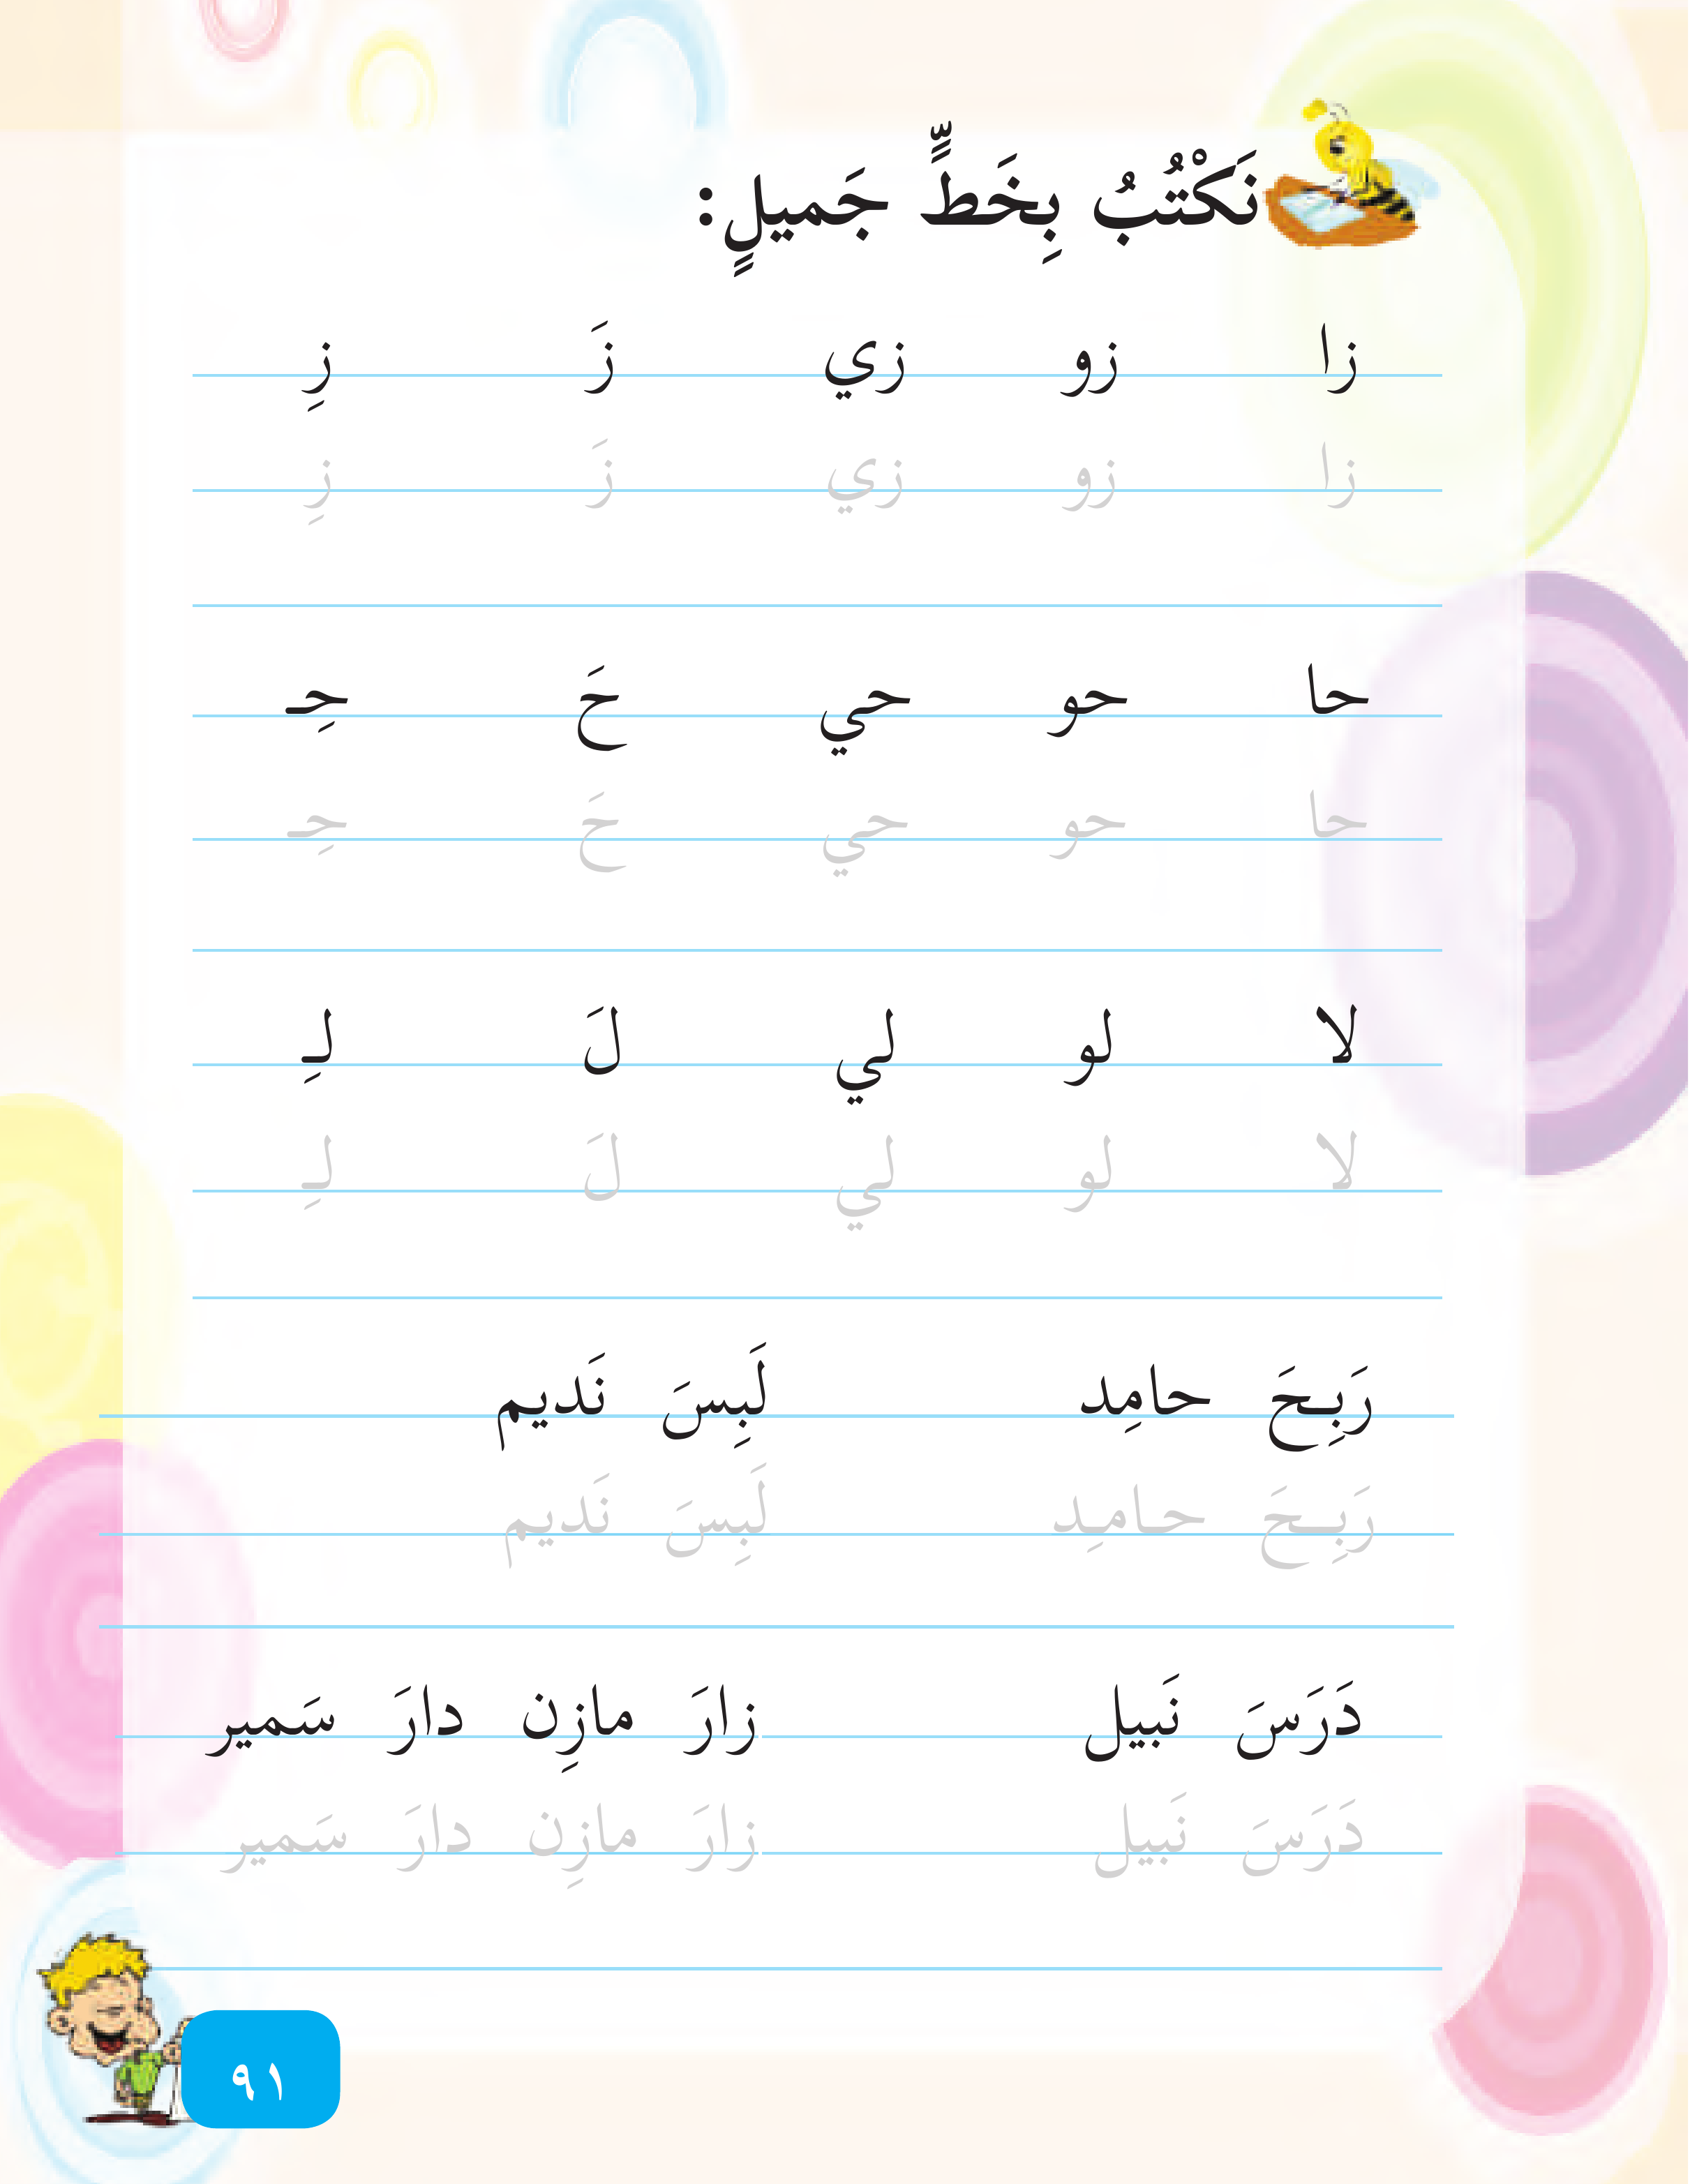 نَكْتُبُ بِخَطٍّ جَميلٍ:
زا زو زي زَ زِ
زا زو زي زَ زِ
حا حو حي حَ حِـ
حا حو حي حَ حِـ
لا لو لي لَ لِـ
لا لو لي لَ لِـ
رَبِـحَ حامِد لَبِسَ نَديم
رَبِـحَ حـامـِد لَبِسَ نَديم
دَرَسَ نَبيل زارَ مازِن دارَ سَمير
دَرَسَ نَبيل زارَ مازِن دارَ سَمير
٩١